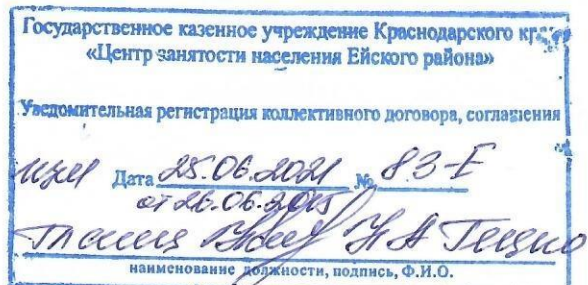 Государственное казенное учреждение Краснодарского
«Центр занятости населения Ейского района»
Уведомительная регистрация коллективного договора, соглашения
изм Дата 25.06.2021 № 83-Е
от 26.06.2015
Н А
наименование должности, подпись, Ф.И.О.